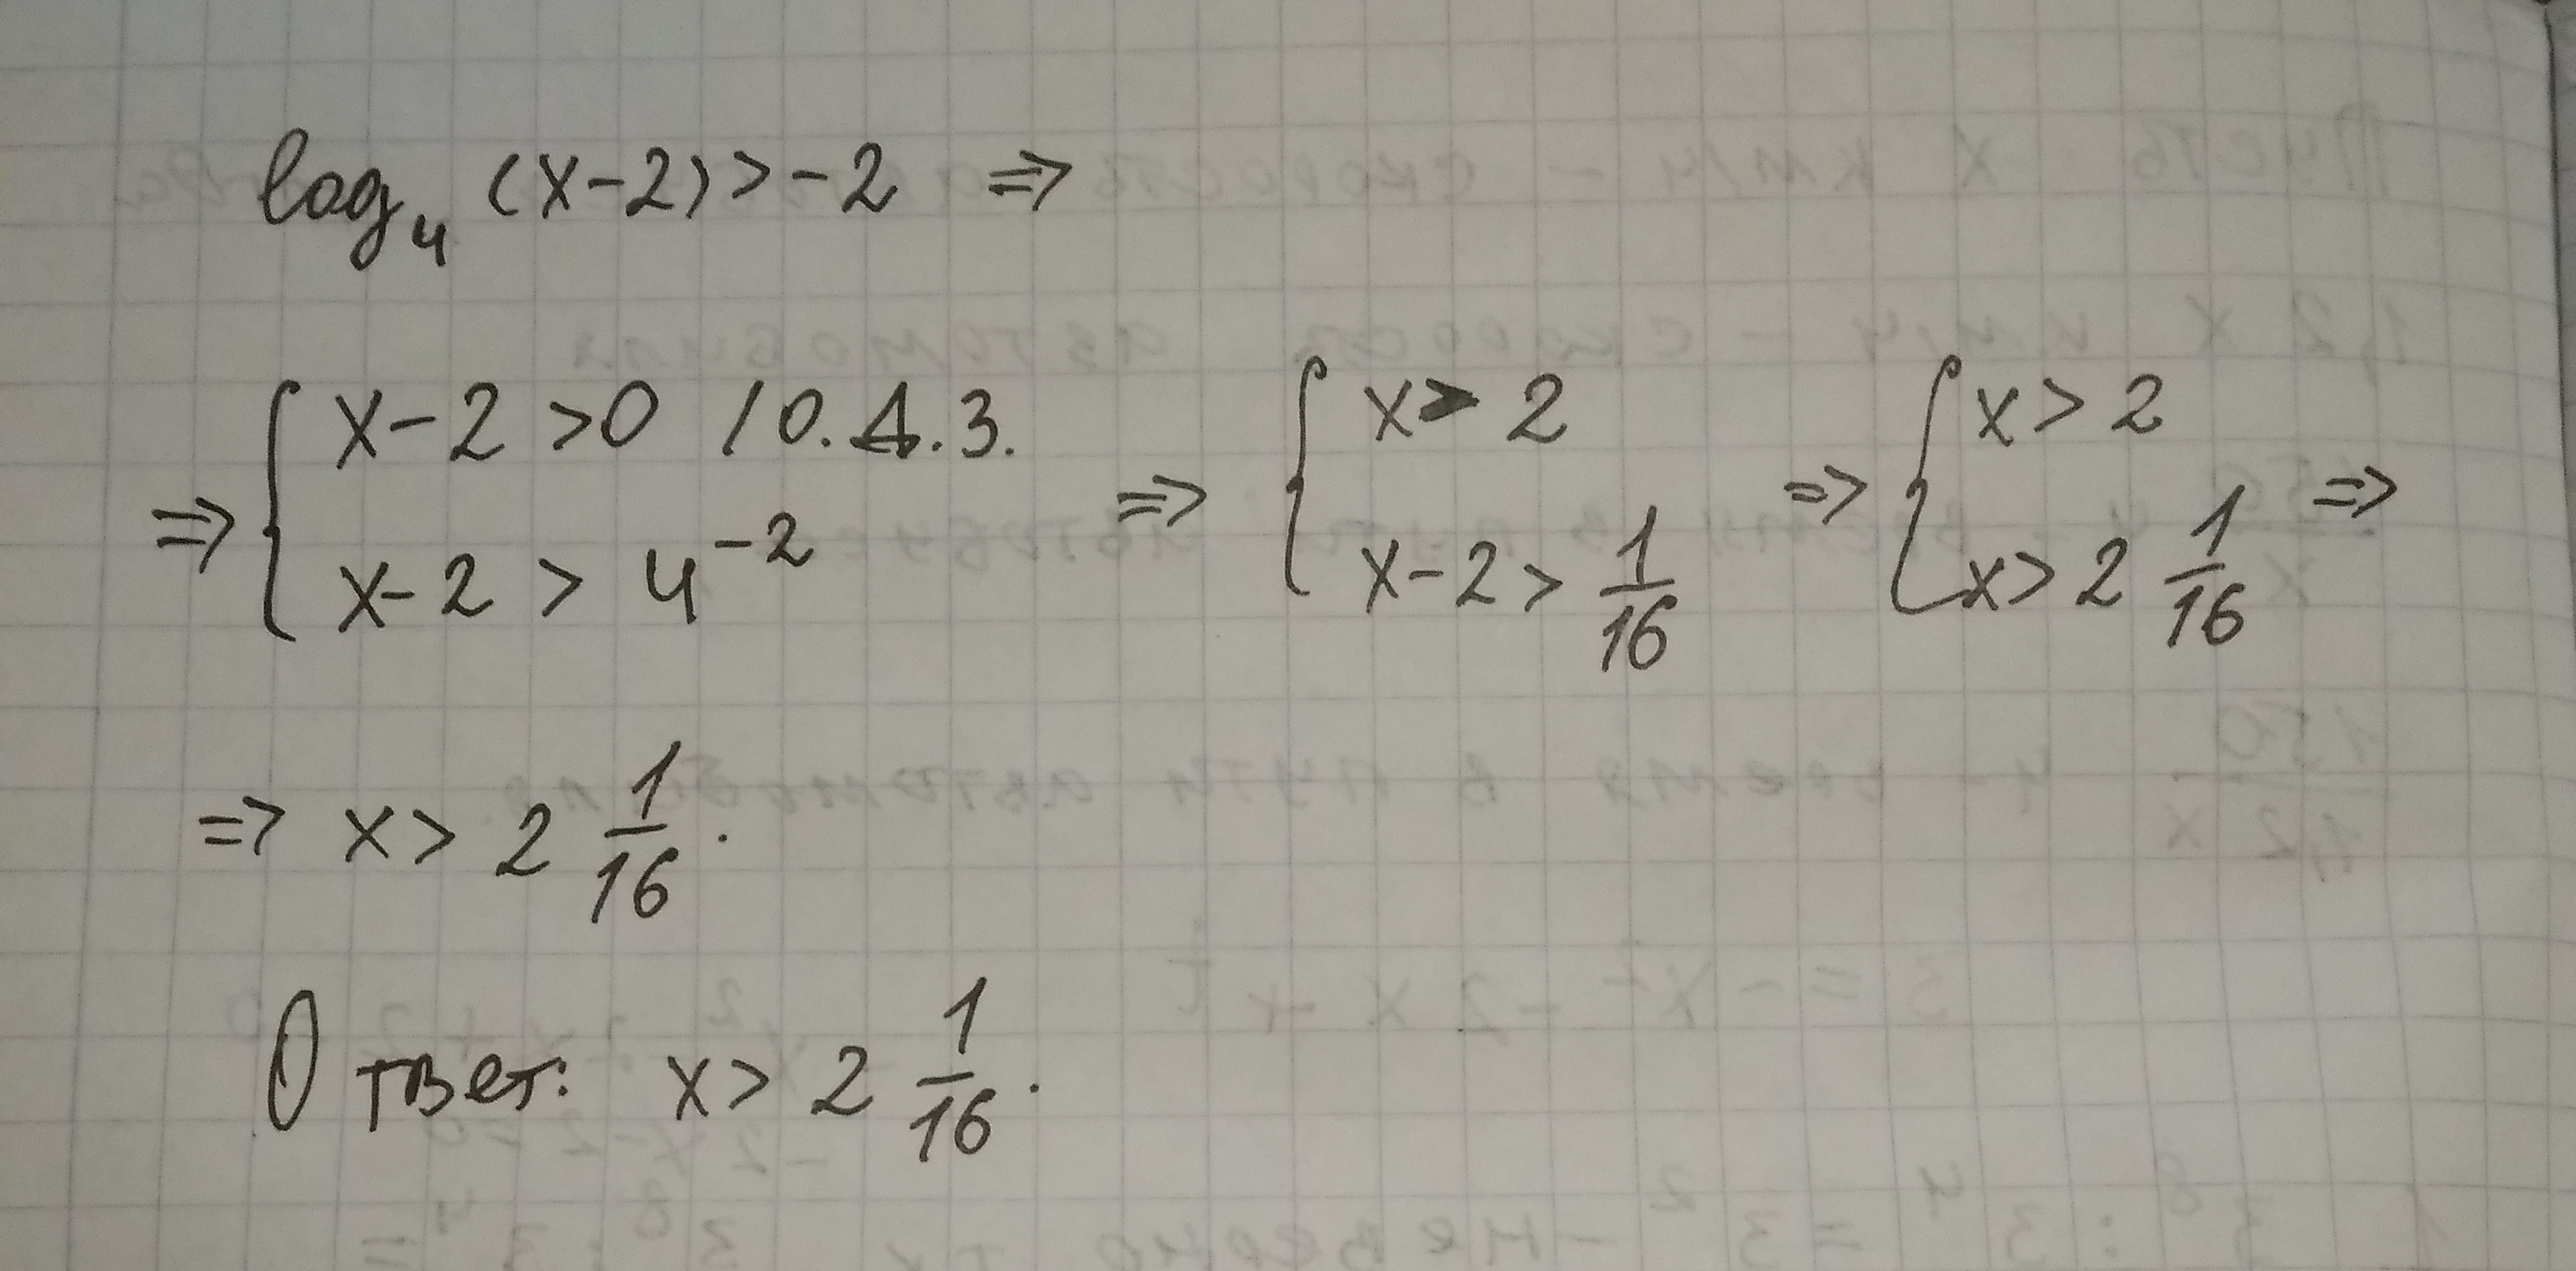 log₄ (x-2) > -2 ⇒
⇒ { x-2 > 0 / О.Д.З. ; x-2 > 4⁻² ⇒ { x > 2 ; x-2 > 1/16 ⇒ { x > 2 ; x > 2 1/16 ⇒
⇒ x > 2 1/16.
Ответ: x > 2 1/16.